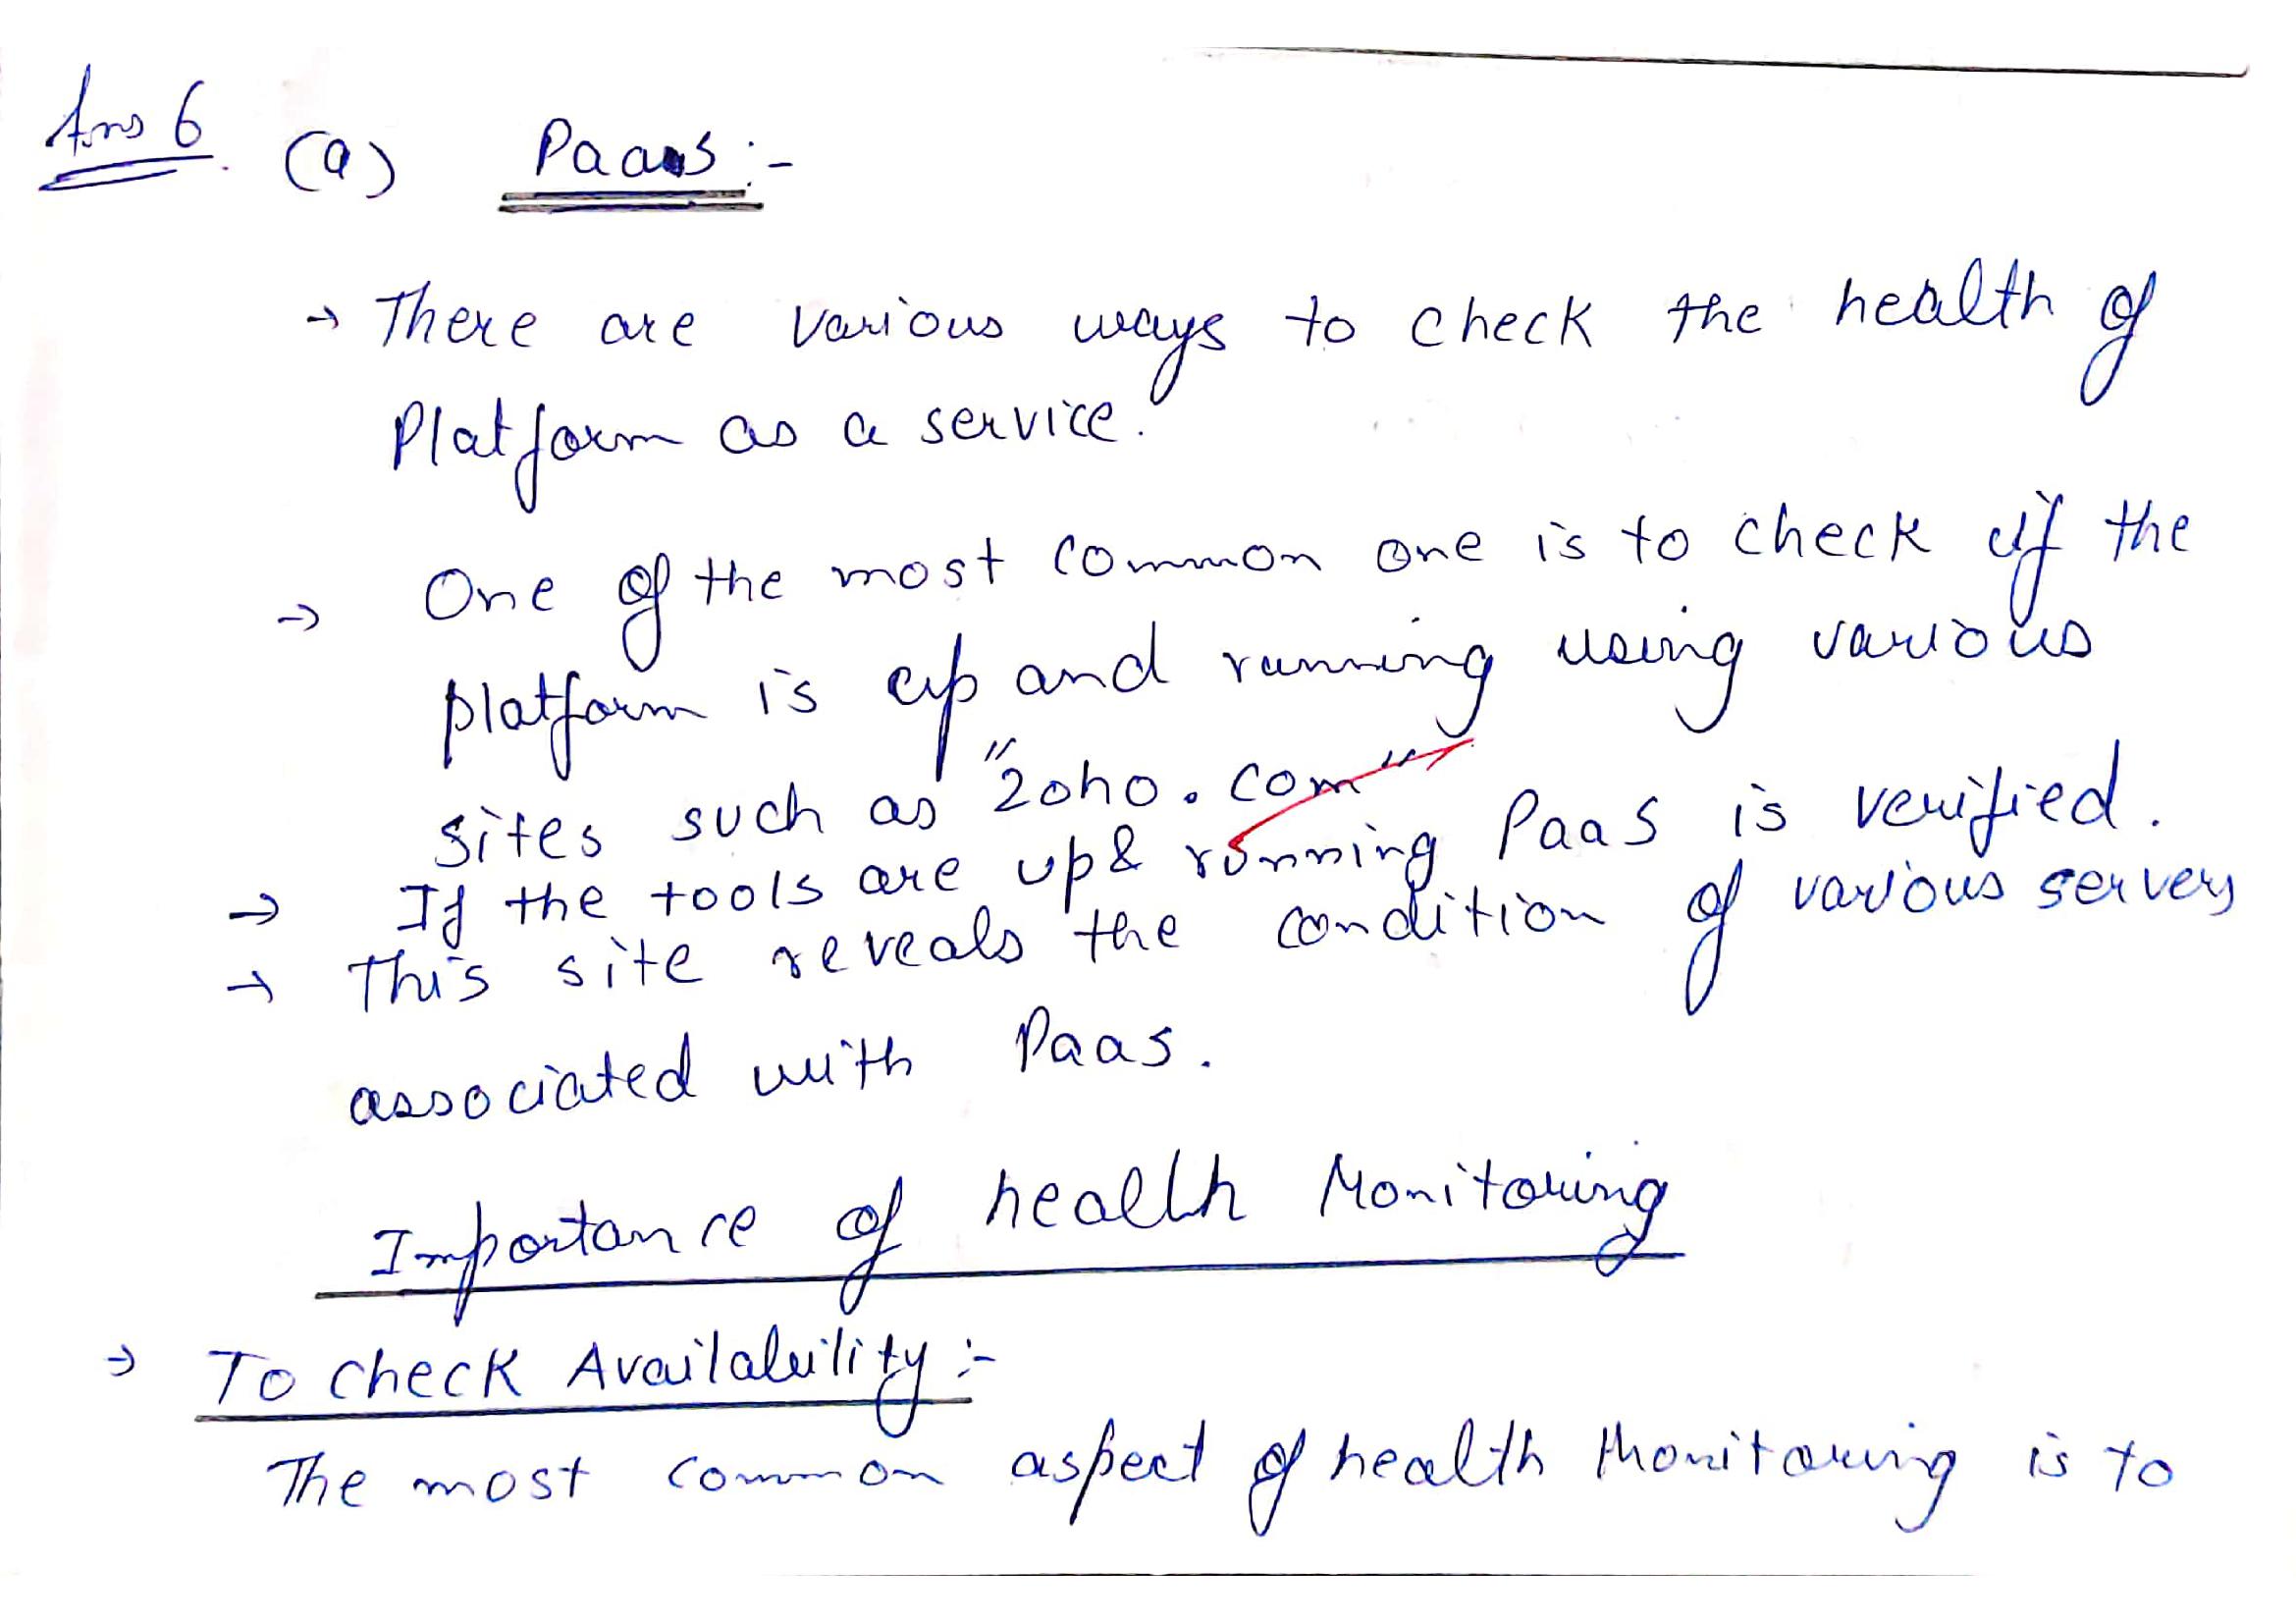 Ans 6. (a) Paas :-
→ There are various ways to check the health of
Platform as a service.
→ One of the most common one is to check if the
platform is up and running using various
sites such as "zoho.com"
→ If the tools are up & running PaaS is verified.
→ This site reveals the condition of various servers
associated with Paas.
Importance of health Monitoring
→ To check Availability :-
The most common aspect of health Monitoring is to